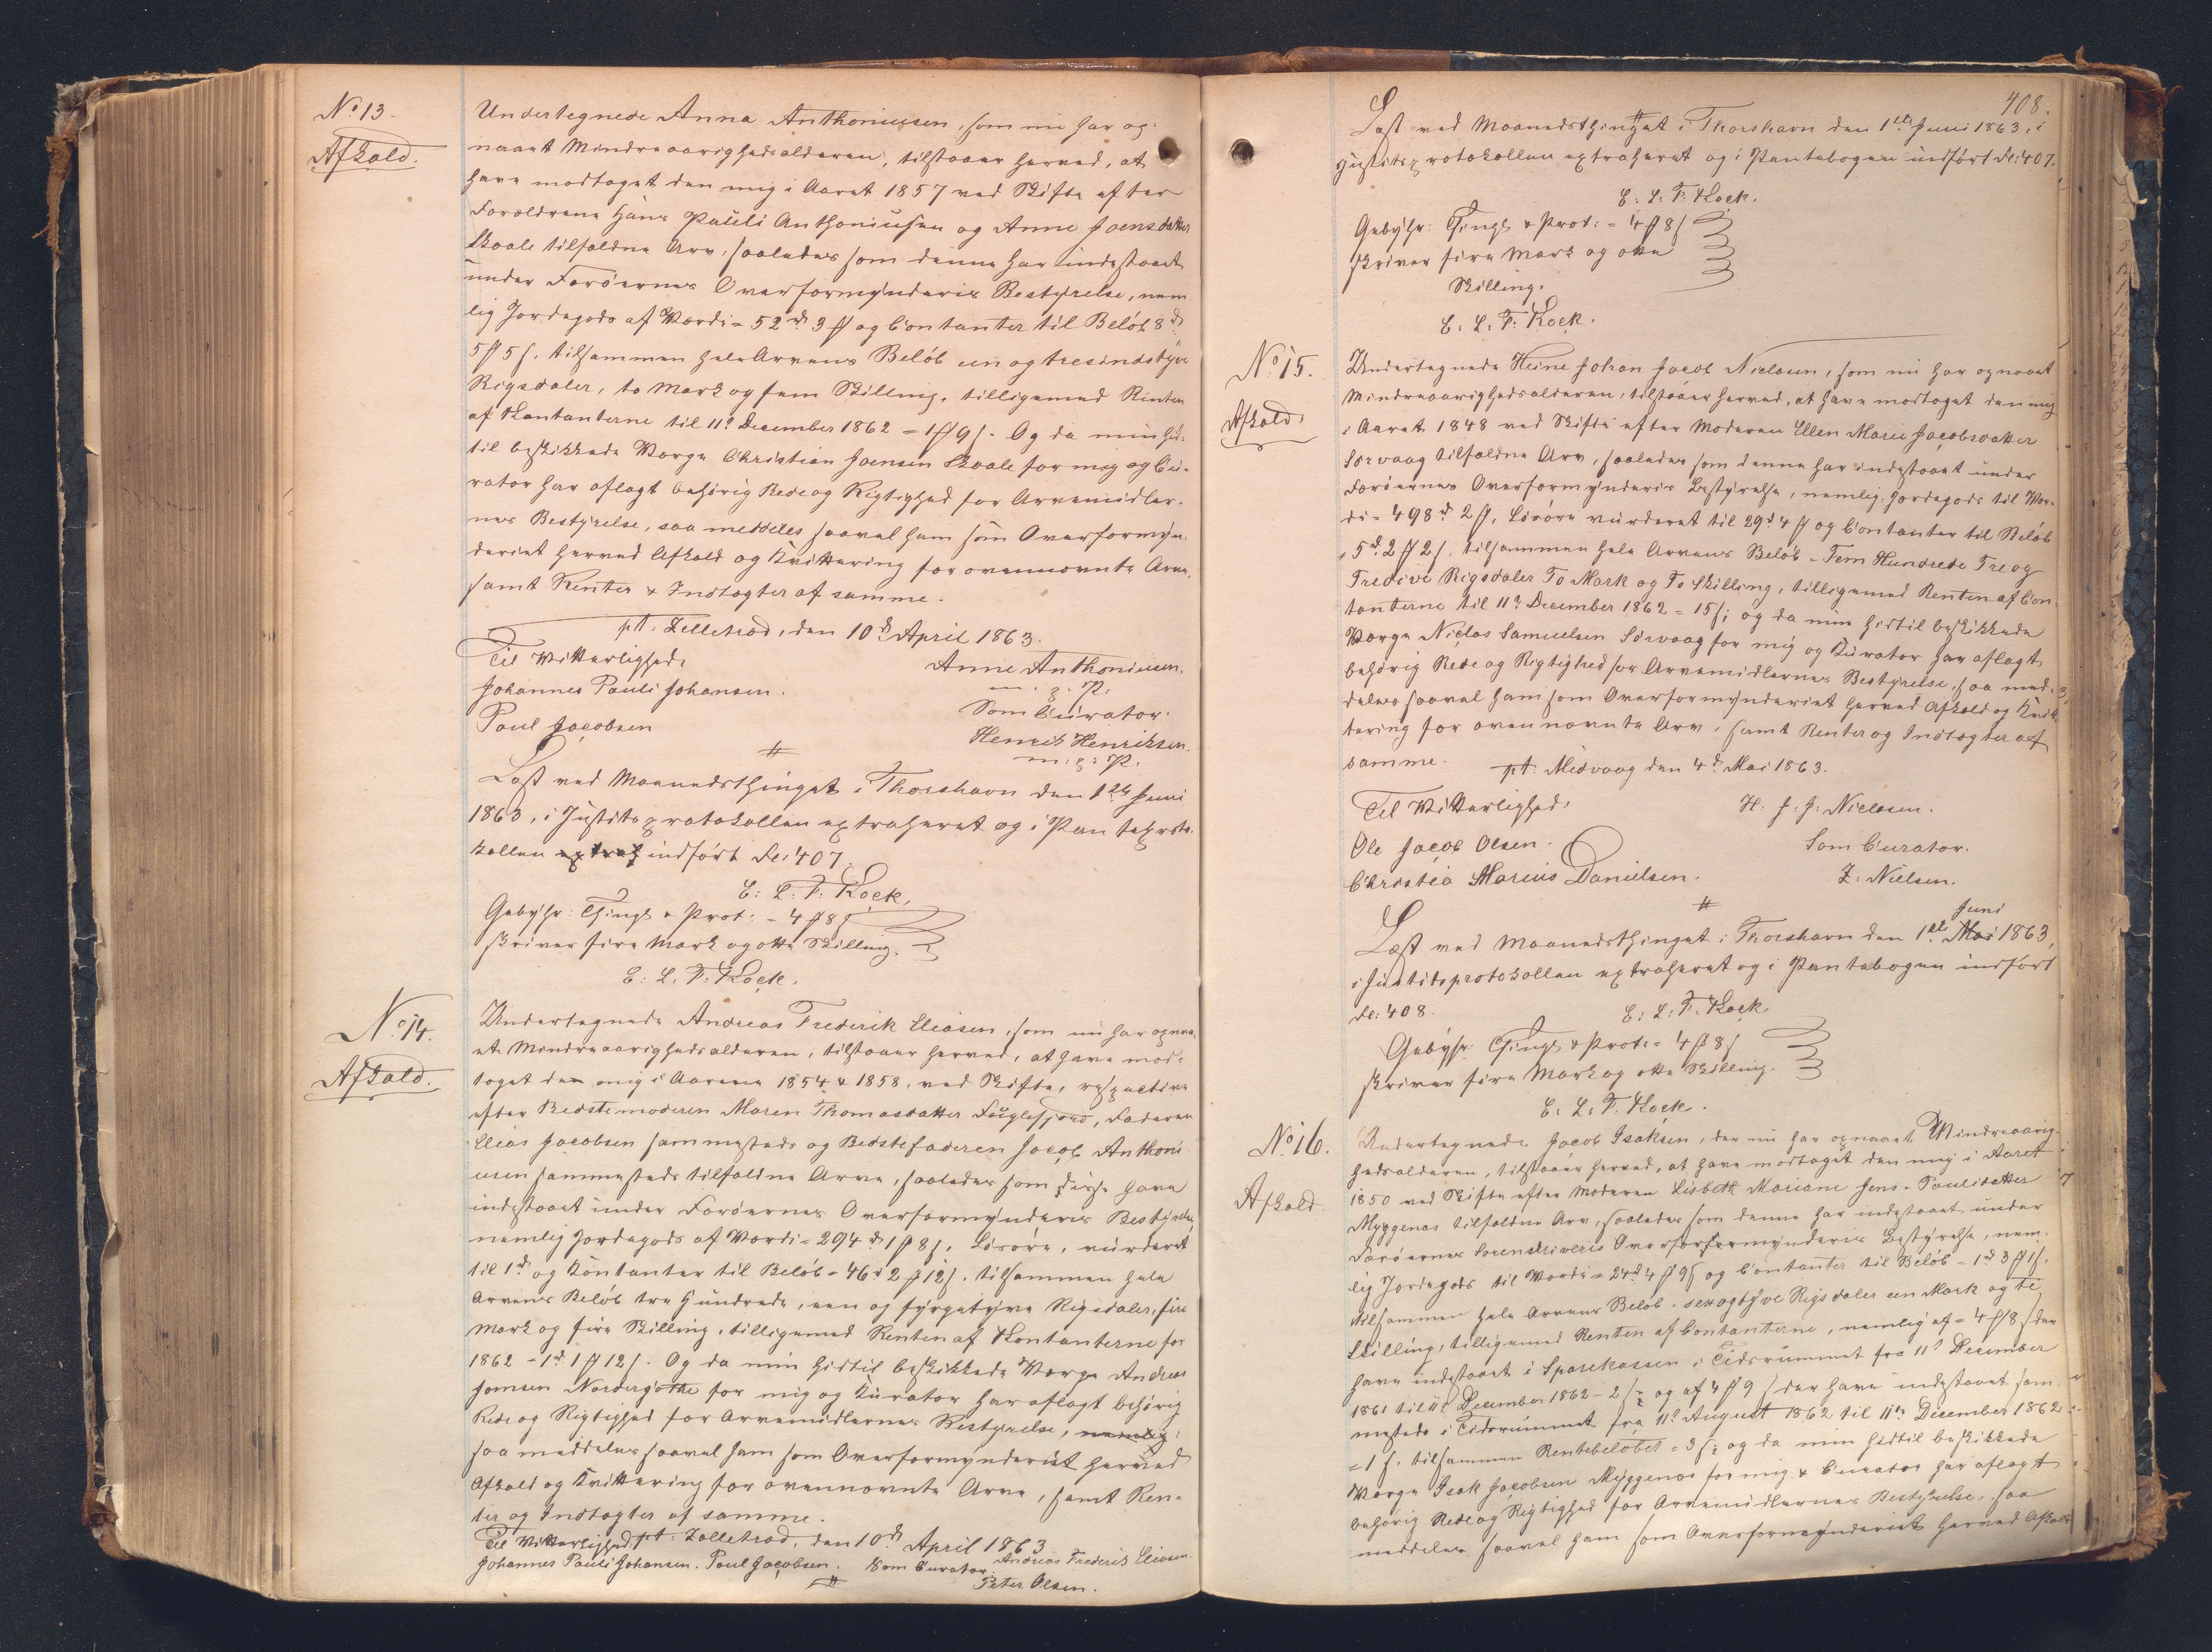 No 13.
Afkald.
Undertegnede Anna Anthoniusen, som nu har op-
naaet Mindreaarighedsalderen, tilstaaer herved, at
have modtaget den mig i Aaret 1857 ved Skifte efter
Forældrene Hans Pauli Anthoniussen og Anne Joensdatter
Skaale tilfaldne Arv, saaledes som denne har indestaaet
under Færøernes Overformynderis Bestyrelse, nem
lig Jordegods af Værdi = 52 rd 3 ₰ og Contanter til Beløb 8 rd
5 ₰ 5 s. tilsammen hele Arvens Beløb een og tresindstyve
Rigsdaler, to Mark og fem Skilling, tilligemed Renten
af Kontanterne til 11te December 1862 = 1 ₰ 9 s. Og da min hid-
til beskikkede Værge Christian Joensen Skaale for mig og Cu-
rator har aflagt behørig Rede og Rigtighed for Arvemidler-
nes Bestyrelse, saa meddeles saavel ham som Overformyn-
deriet herved Afkald og Kvittering for ovennævnte Arv,
samt Renter & Indtægter af samme.
pt. Zelletrød, den 10de April 1863.
Til Vitterlighed.
Anne Anthoniusen.
Johannes Pauli Johansen.
m. g. P.
Som Curator.
Poul Jacobsen
Henrik Henriksen.
m: g: P.
Læst ved Maanedsthinget i Thorshavn den 1ste Juni
1863, i Justitsprotokollen extraheret og i Panteproto-
kollen indført Fol: 407.
E: L: F: Kock.
Gebyhr: Thingl & Prot: = 4 ₰ 8 s
skriver fire Mark og otte Skilling.
E: L. F. Kock.
No 14.
Afkald.
Undertegnede Andreas Frederik Eliasen, som nu har opnaa-
et Mindreaarighedsalderen, tilstaaer herved, at have mod-
taget den mig i Aarene 1854 & 1858, ved Skifte, respective
efter Bedstemoderen Maren Thomasdatter Fuglefjord, Faderen
Elias Jacobsen sammesteds og Bedstefaderen Jacob Anthoni
usen sammesteds tilfaldne Arve, saaledes som disse have
indestaaet under Færøernes Overformynderis Bestyrelse,
nemlig Jordegods af Værdi = 294 rd 1 ₰ 8 s, Løsøre, vurderet
til 1 rd og Kontanter til Beløb = 46 rd 2 ₰ 12 s. tilsammen hele
Arvens Beløb tre Hundrede, een og fyrgetyve Rigsdaler, fire
Mark og fire Skilling, tilligemed Renten af Kontanterne for
1862 = 1 rd 1 ₰ 12 s. Og da min hidtil beskikkede Værge Andreas
Joensen Nordergøthe for mig og Kurator har aflagt behørig
Rede og Rigtighed for Arvemidlernes Bestyrelse, nemlig:
saa meddeles saavel ham som Overformynderiet herved
Afkald og Kvittering for ovennævnte Arve, samt Ren-
ter og Indtægter af samme.
Til Vitterlighed: pt: Zelletrød, den 10de April 1863
Johannes Pauli Johansen. Poul Jacobsen. Som Curator: Andreas Frederik Eliasen.
Peter Olsen.
408.
Læst ved Maanedsthinget i Thorshavn den 1ste Juni 1863, i
Justitsprotokollen extraheret og i Pantebogen indført Fol: 407.
E: L: F: Kock.
Gebyhr: Thingl & Prot: = 4 ₰ 8 s
skriver fire Mark og otte
Skilling.
E: L: F: Kock.
No 15.
Afkald.
Undertegnede Heine Johan Jacob Nielasen, som nu har opnaaet
Mindreaarighedsalderen, tilstaaer herved, at have modtaget den mig
i Aaret 1848 ved Skifte efter Moderen Ellen Marie Jacobsdatter
Sørvaag tilfaldne Arv, saaledes som denne har indestaaet under
Færøernes Overformynderis Bestyrelse, nemlig: Jordegods til Vær-
di = 498 rd 2 ₰, Løsøre vurderet til 29 rd 4 ₰ og Contanter til Beløb
= 5 rd. 2 ₰ 2 s. tilsammen hele Arvens Beløb = Fem Hundrede Tre og
Tredive Rigsdaler To Mark og To Skilling, tilligemed Renten af Con-
tanterne til 11te December 1862 = 15 s; og da min hidtil beskikkede
Værge Niclas Samuelsen Sørvaag for mig og Kurator har aflagt
behørig Rede og Rigtighed for Arvemidlernes Bestyrelse, saa med-
deles saavel ham som Overformynderiet herved Afkald og Kvit-
tering for ovennævnte Arv, samt Renter og Indtægter af
samme.
pt: Midvaag den 4de Mai 1863.
Til Vitterlighed:
H. J. J. Nielasen.
Ole Jacob Olsen.
Som Curator.
Christia Marius Danielsen.
Z. Nielsen.
Læst ved Maanedsthinget i Thorshavn den 1ste Mai Juni 1863,
i Justitsprotokollen extraheret og i Pantebogen indført
Fol: 408.
E: L: F. Kock.
Gebyhr: Thingl & Prot: = 4 ₰ 8 s
skriver fire Mark og otte Skilling.
E: L: F. Kock.
No 16.
Afkald.
Undertegnede Jacob Isaksen, der nu har opnaaet Mindreaarig-
hedsalderen, tilstaaer herved, at have modtaget den mig i Aaret
1850 ved Skifte efter Moderen Lisbeth Mariane Jens-Paulidatter
Myggenæs tilfaldne Arv, saaledes som denne har indestaaet under
Færøernes Sorenskriveris Overformynderis Bestyrelse, nem-
lig Jordegods til Værdi = 24 rd 4 ₰ 9 s og Contanter til Beløb = 1 rd 3 ₰ 1 s.
tilsammen hele Arvens Beløb = sex og tyve Rigsdaler een Mark og ti
Skilling, tilligemed Renten af Contanterne, nemlig af = 4 ₰ 8 s der
have indestaaet i Sparekassen i Tidsrummet fra 11te December
1861 til 11te December 1862 = 2 s; og af 4 ₰ 9 s der have indestaaet sam-
mesteds i Tidsrummet fra 11te August 1862 til 11te December 1862
= 1 s. tilsammen Rentebeløbet = 3 s; og da min hidtil beskikkede
Værge Isak Jacobsen Myggenæs for mig & Curator har aflagt
behørig Rede og Rigtighed for Arvemidlernes Bestyrelse, saa
meddeles saavel ham som Overformynderiet herved Afkald